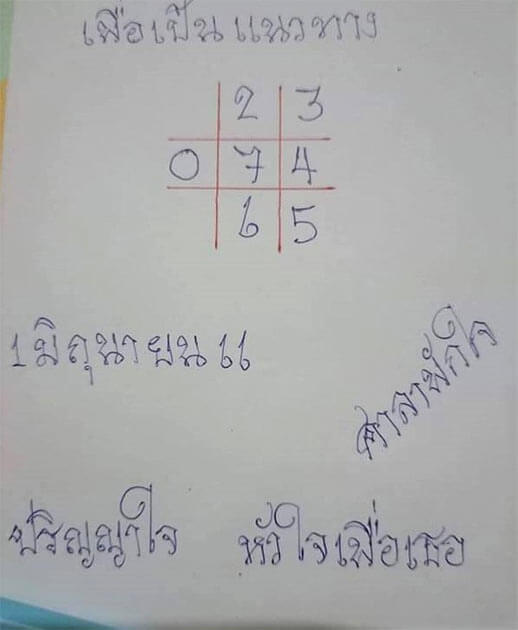 เพื่อเป็นแนวทาง
2 3
0 7 4
6 5
1 มิถุนายน 66
ศาลาพักใจ
ปริญญาใจ หัวใจเพื่อเธอ